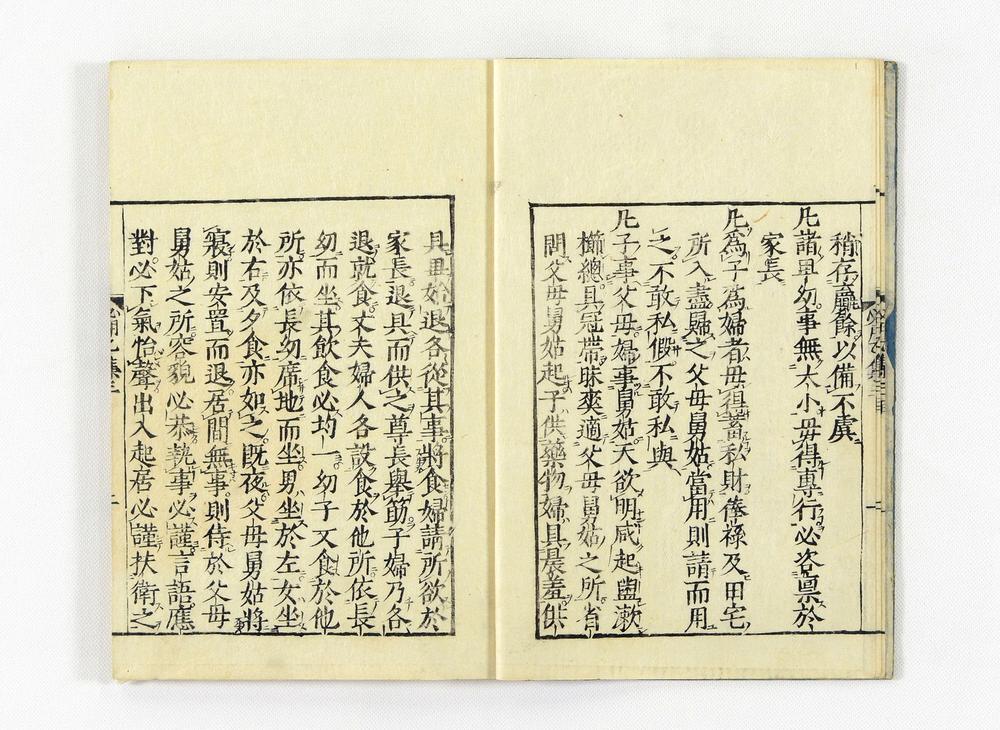 稍存贏餘以備不虞
凡諸卑幼事無大小毋得專行必咨稟於
家長
凡為子為婦者毋得蓄私財俸祿及田宅
所入盡歸之父母舅姑當用則請而用
之不敢私假不敢私與
凡子事父母婦事舅姑天欲明咸起盥漱
櫛總具冠帶昧爽適父母舅姑之所省
問父母舅姑起子供藥物婦具晨羞供
具畢姑退各從其事將食婦請所欲於
家長退具而供之尊長舉筯子婦乃各
退就食丈夫婦人各設食於他所依長
幼而坐其飲食必均一幼子又食於他
所亦依長幼席地而坐男坐於左女坐
於右及夕食亦如之既夜父母舅姑將
寢則安置而退居間無事則侍於父母
舅姑之所容貌必恭執事必謹言語應
對必下氣怡聲出入起居必謹扶衛之